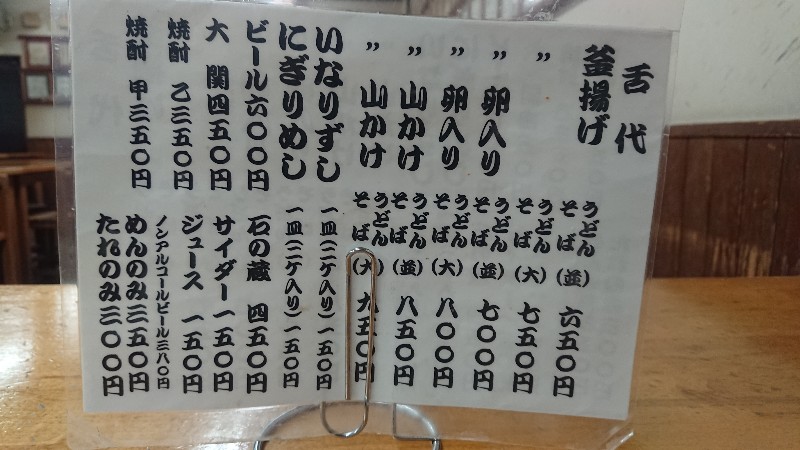 舌代
釜揚げ うどん そば (並) 六五〇円
〃 うどん そば (大) 七五〇円
〃 卵入り うどん そば (並) 七〇〇円
〃 卵入り うどん そば (大) 八〇〇円
〃 山かけ うどん そば (並) 八五〇円
〃 山かけ うどん そば (大) 九五〇円
いなりずし 一皿(二ケ入り) 一五〇円
にぎりめし 一皿(二ケ入り) 一五〇円
ビール 六〇〇円
大関 四五〇円
焼酎 乙 三五〇円
焼酎 甲 三五〇円
石の蔵 四五〇円
サイダー 一五〇円
ジュース 一五〇円
ノンアルコールビール 三八〇円
めんのみ 三五〇円
たれのみ 三〇〇円